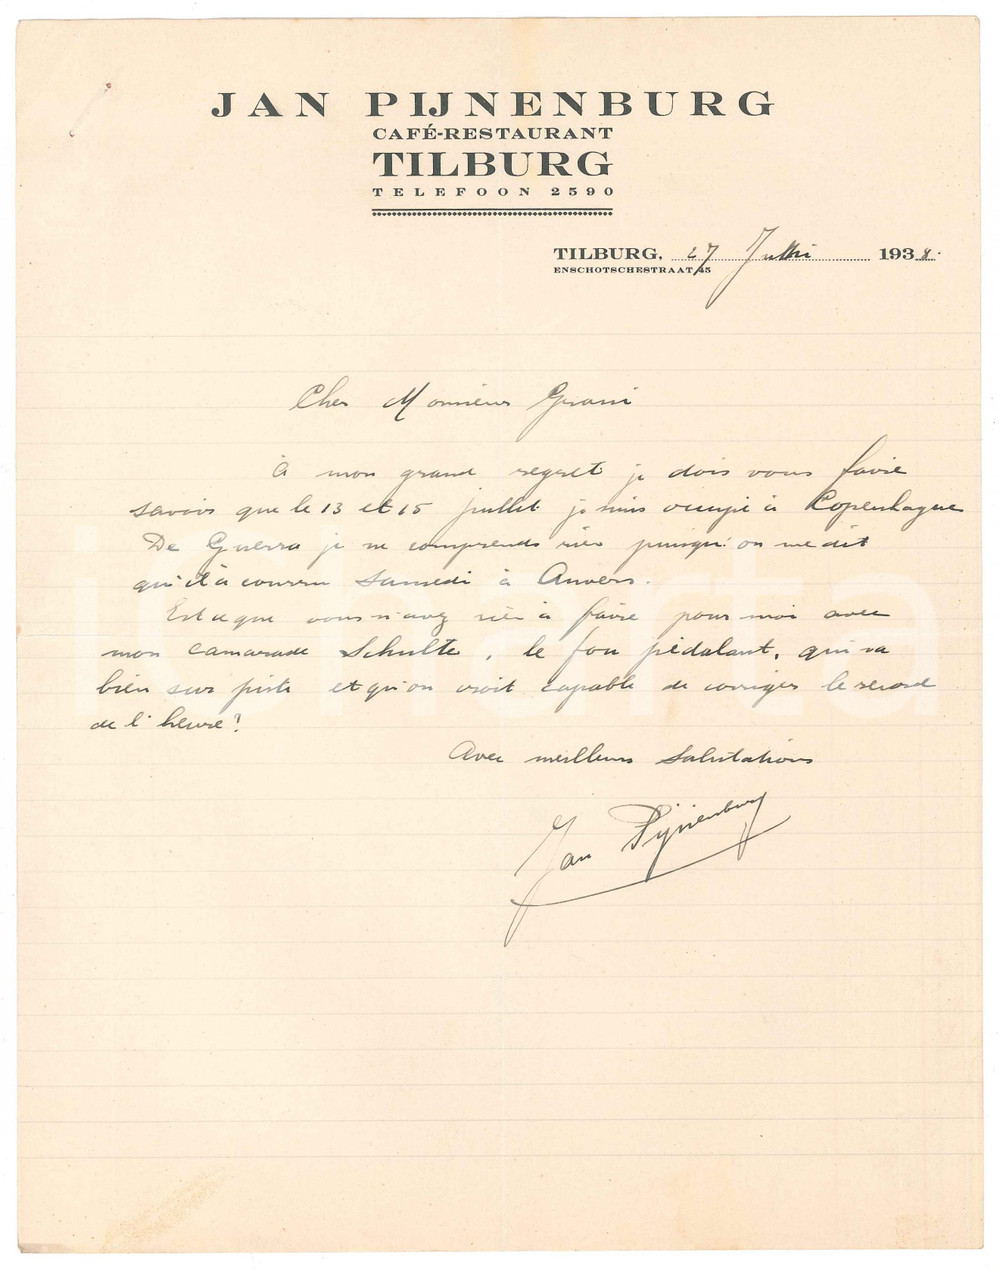 JAN PIJNENBURG
CAFÉ-RESTAURANT
TILBURG
TELEFOON 2590
TILBURG, 27 1938.
ENSCHOTSCHESTRAAT 45
Cher Monsieur
à mon grand regret je dois vous faire
savoir que le 13 et 15 juillet je suis occupé à Copenhague
De Guerra je ne comprends rien puisqu'on me dit
qu'il à couru Samedi à Anvers.
Est ce que vous n'avez rien à faire pour moi avec
mon camarade Schulte, le fou pédalant, qui va
bien sur piste et qu'on croit capable de corriger le record
de l'heure?
Avec meilleurs salutations
Jan Pijnenburg
iCharta